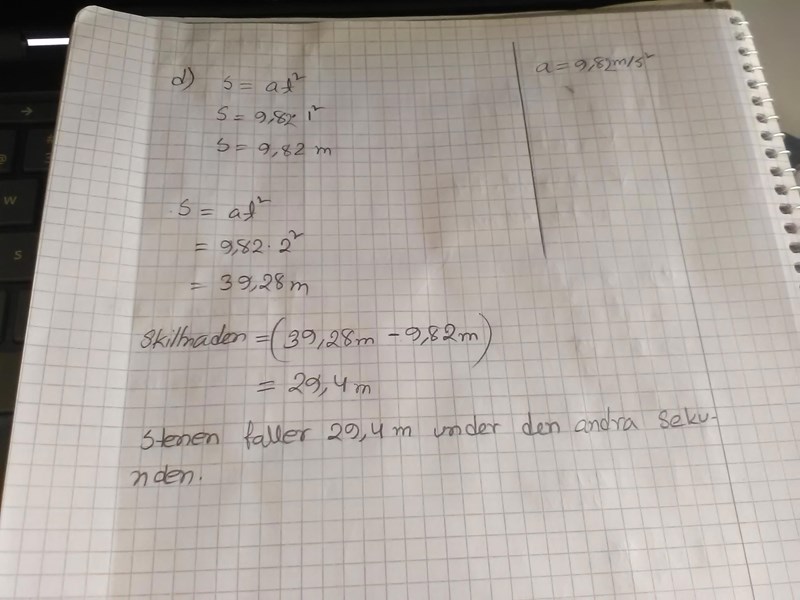 d) s = at²
a = 9,82m/s²
s = 9,82 1²
s = 9,82 m
s = at²
= 9,82 · 2²
= 39,28m
Skillnaden = (39,28m - 9,82m)
= 29,4m
Stenen faller 29,4m under den andra seku-
nden.